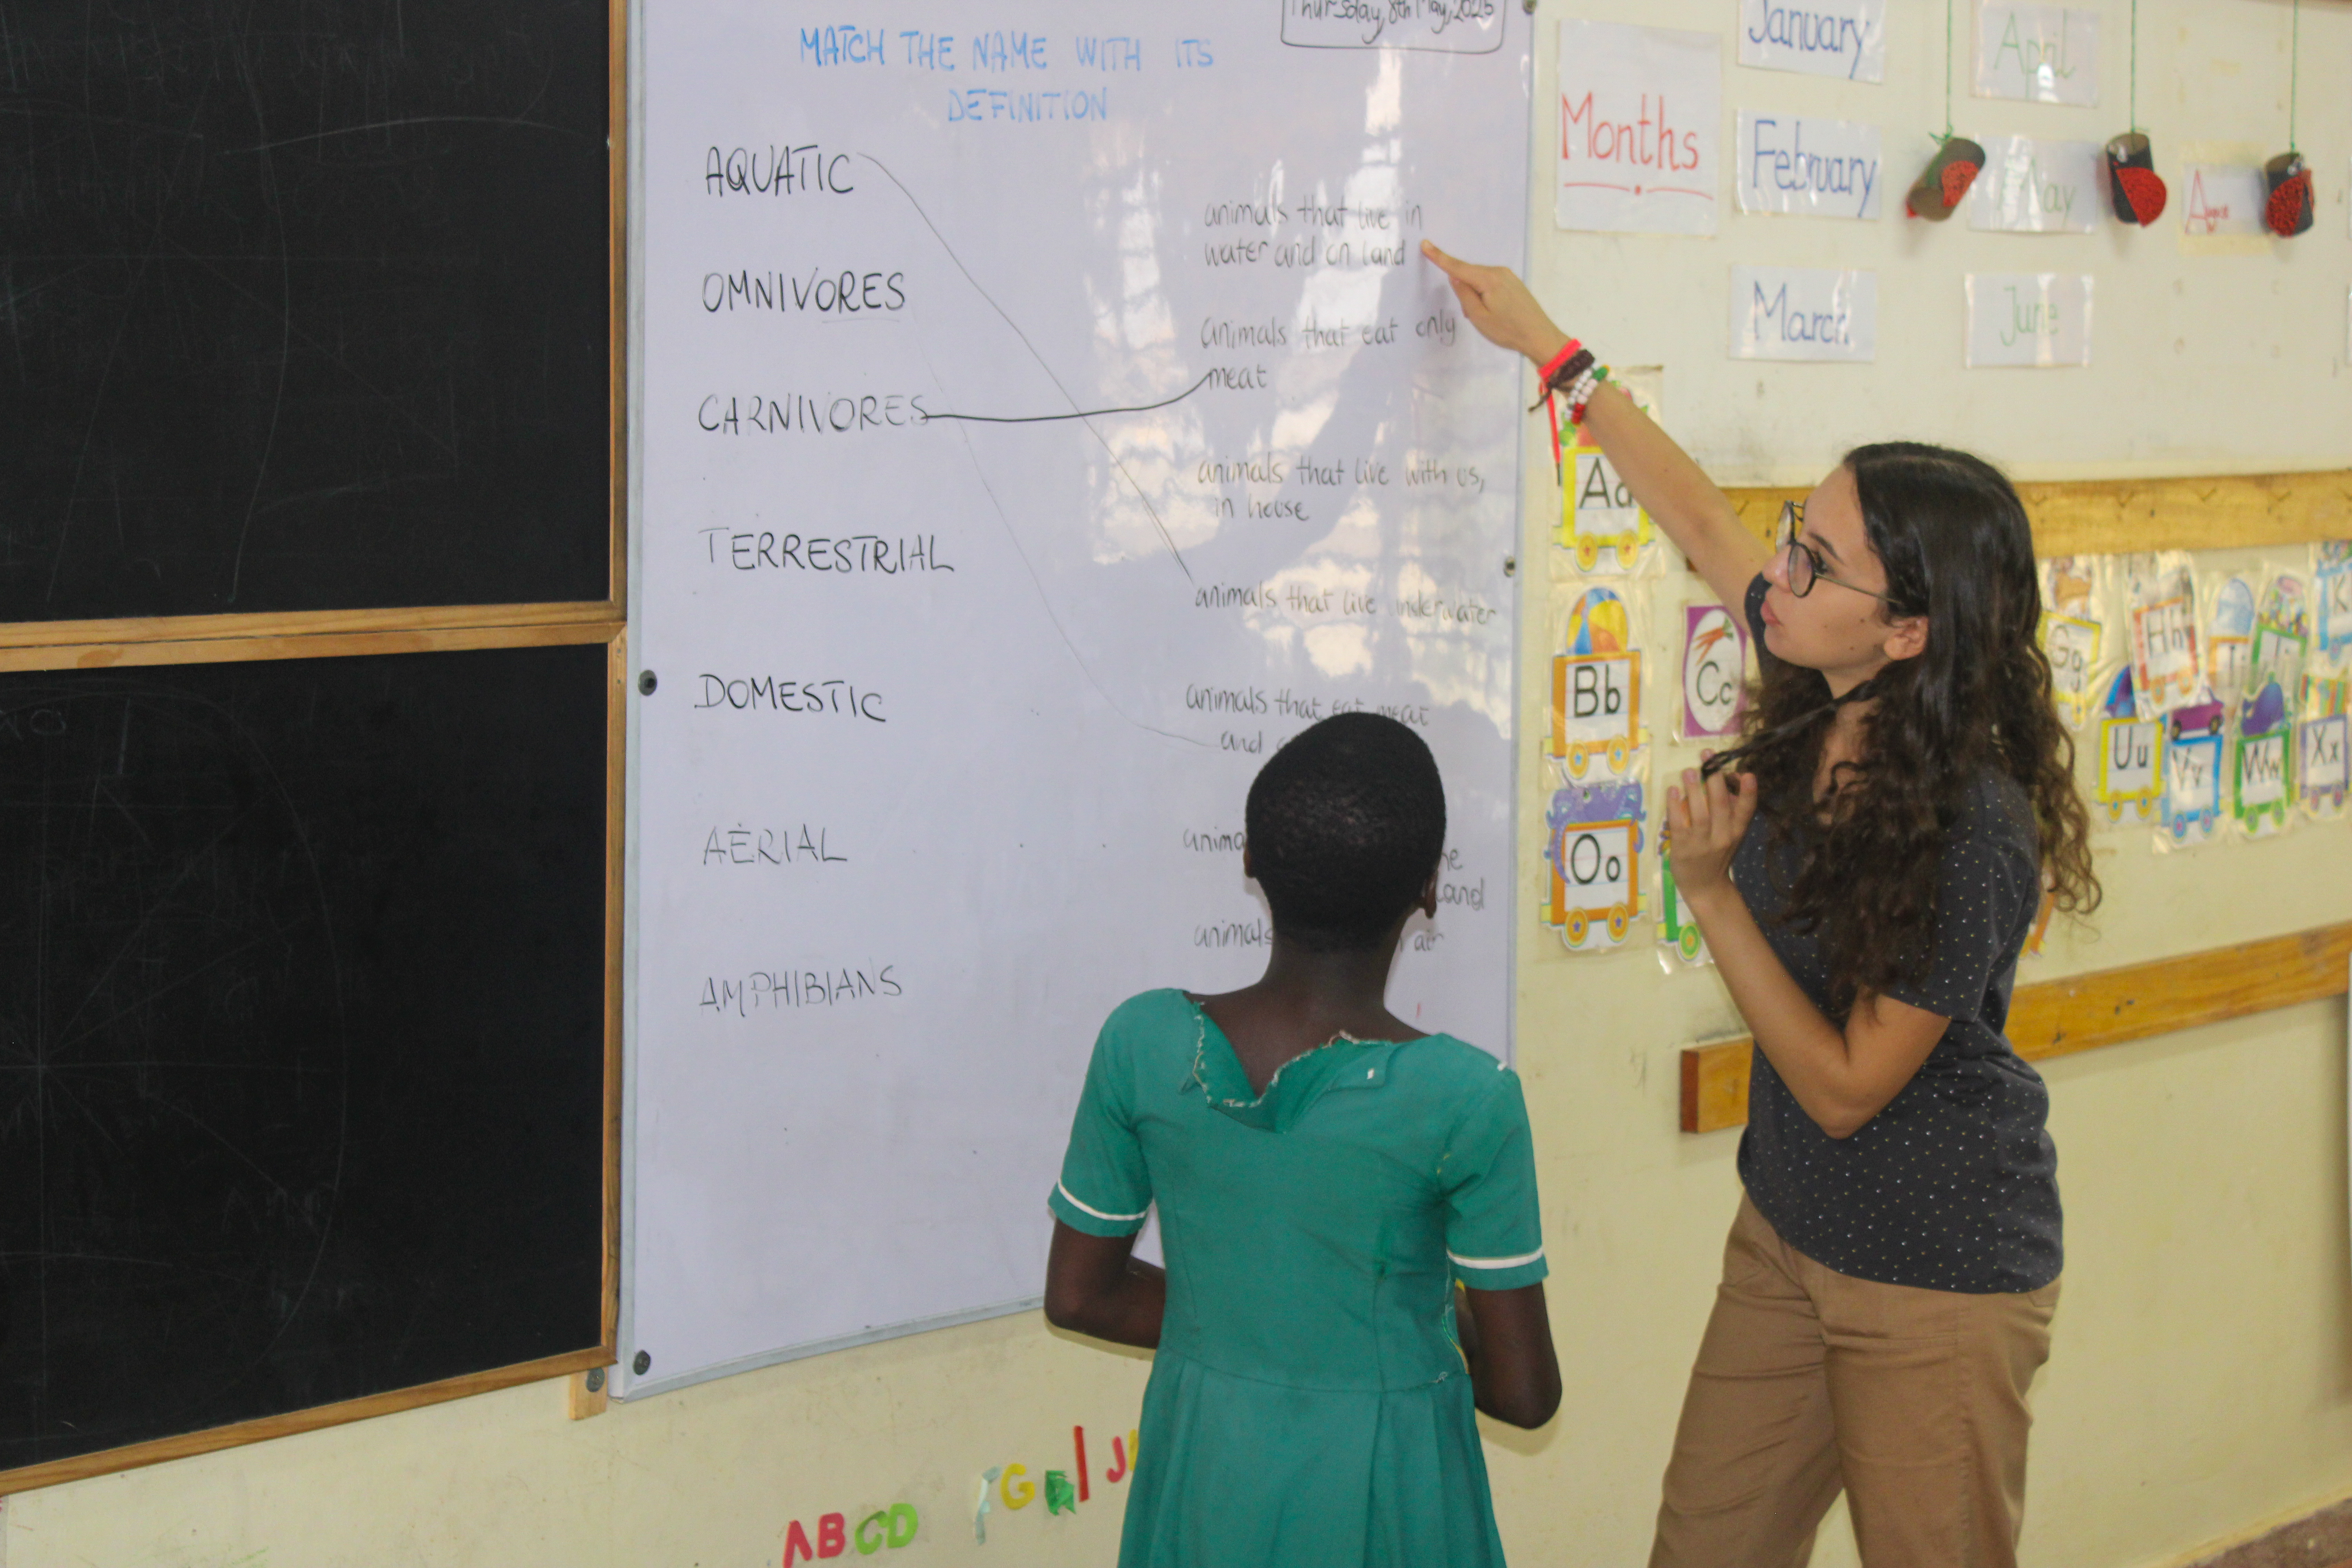 Thursday, 8th May, 2025
MATCH THE NAME WITH ITS
DEFINITION
AQUATIC
OMNIVORES
CARNIVORES
TERRESTRIAL
DOMESTIC
AÈRIAL
AMPHIBIANS
animals that live in
water and on land
animals that eat only
meat
animals that live with us,
in house
animals that live underwater
animals that eat meat
and
land
animals
air
Months
January
February
March
April
May
June
Aa
Bb
Cc
Oo
Gg
Hh
Uu
Vv
Ww
Xx
ABCD
G
I
J